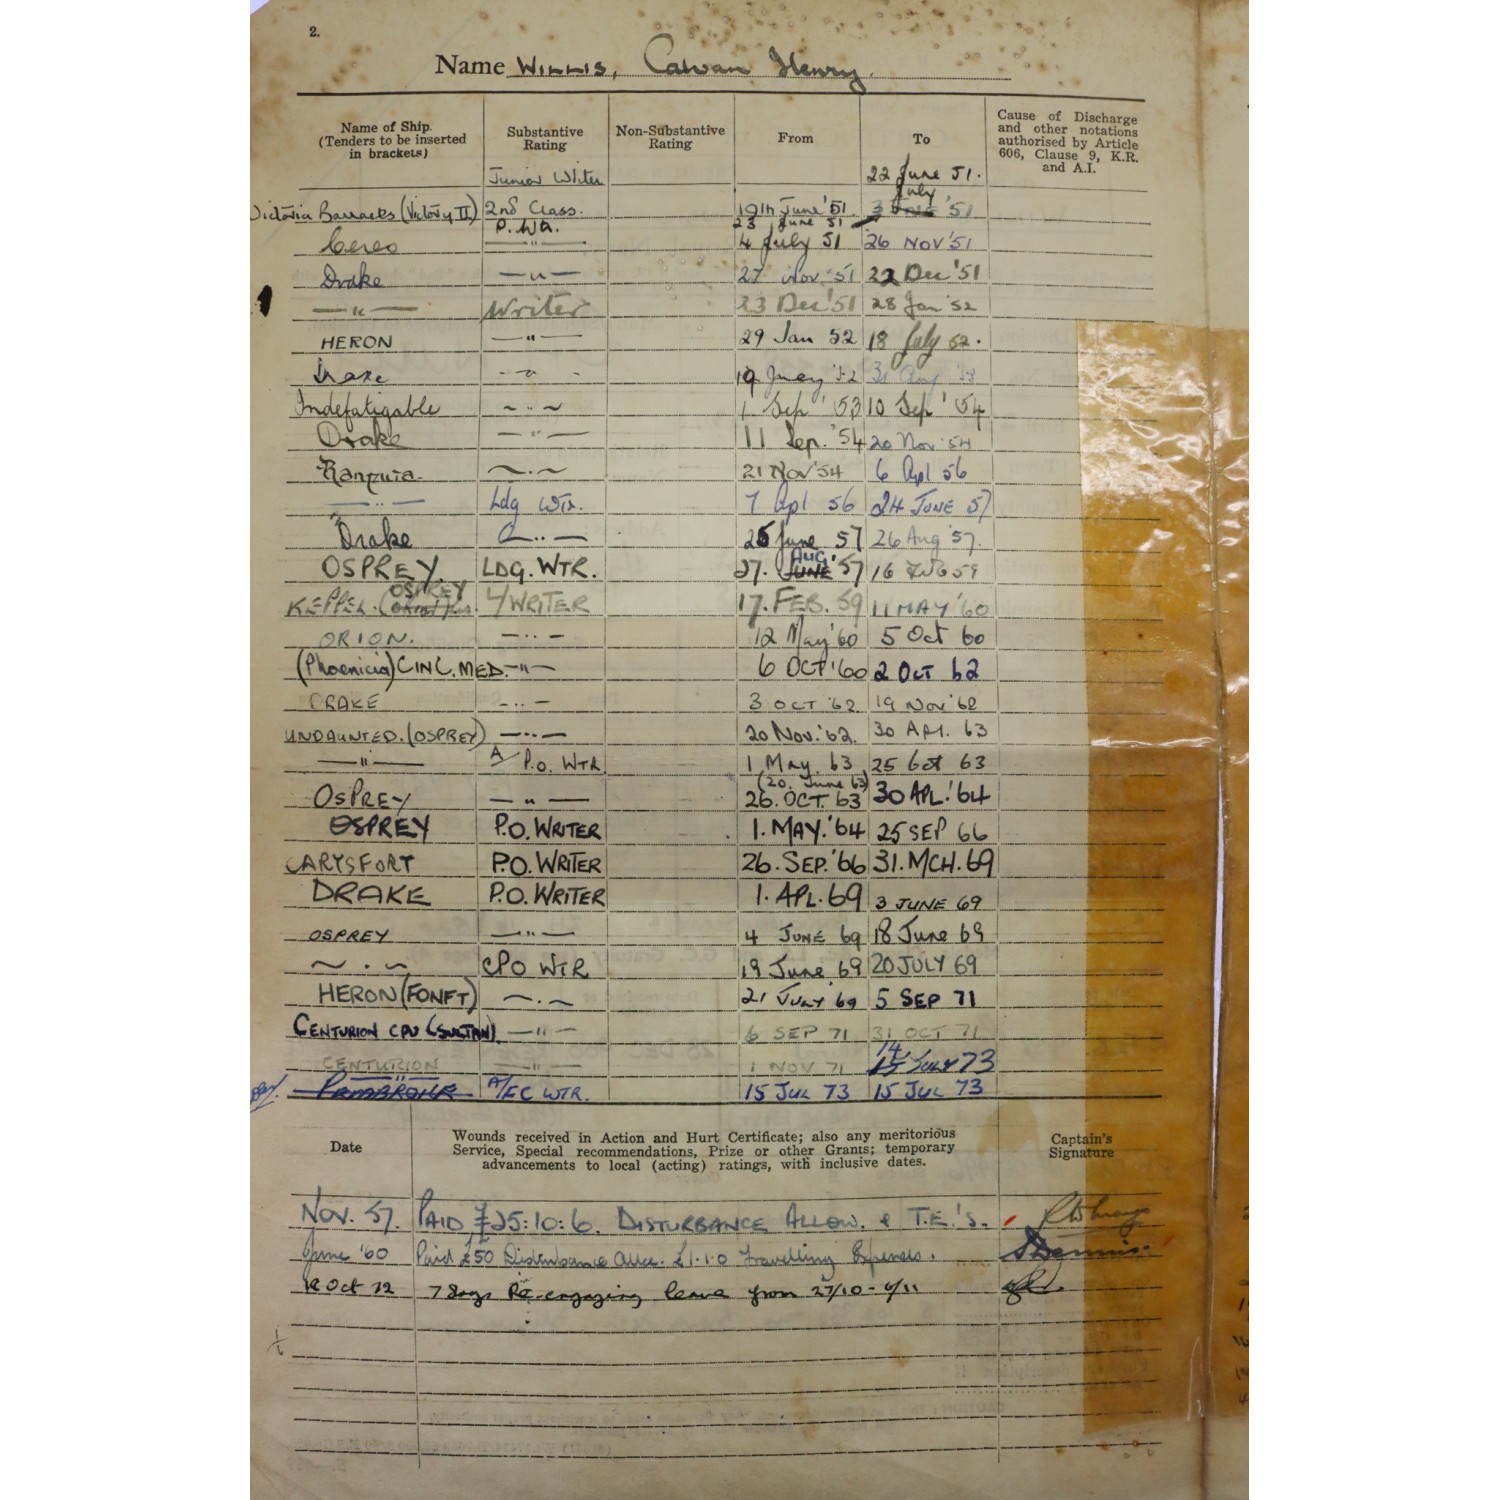 2.
Name WILLIS, Calvan Henry.
Name of Ship. (Tenders to be inserted in brackets) Substantive Rating Non-Substantive Rating From To Cause of Discharge and other notations authorised by Article 606, Clause 9, K.R. and A.I.
Junior Writer 22 June 51.
July
Victoria Barracks (Victory II) 2nd Class. 19th June '51. 3 June '51
P. Wtr. 23 June 51
Ceres —"— 4 July 51 26 NOV '51
Drake —"— 27 Nov 51 22 Dec '51
—"— Writer 23 Dec '51 28 Jan '52
HERON —"— 29 Jan 52 18 July 52.
Drake -"- 19 July '52 31 Aug '53
Indefatigable —"— 1 Sep '53 10 Sep '54
Drake —"— 11 Sep. '54 20 Nov '54
Ranpura —"— 21 NOV '54 6 Apl 56
—"— Ldg Wtr. 7 Apl 56 24 JUNE 57
Drake —"— 25 June 57 26 Aug '57.
AUG
OSPREY. LDG. WTR. 27. JUNE '57 16 FEB 59
OSPREY
KEPPEL. (Orion) L/WRITER 17. FEB. 59 11 MAY '60
ORION. —"— 12 May '60 5 Oct 60
(Phoenicia) CINC. MED. —"— 6 OCT '60 2 OCT 62
DRAKE —"— 3 OCT '62 19 NOV '62
UNDAUNTED. (OSPREY) —"— 20 NOV. '62. 30 APL. 63
—"— A/P.O. WTR 1 May. 63 25 Oct 63
(20. June 63)
OSPREY —"— 26. OCT. 63 30 APL. '64
OSPREY P.O. WRITER 1. MAY. '64 25 SEP 66
CARYSFORT P.O. WRITER 26. SEP. '66 31. MCH. 69
DRAKE P.O. WRITER 1. APL. 69 3 JUNE 69
OSPREY —"— 4 JUNE 69 18 June 69
—"— CPO WTR 19 June 69 20 JULY 69
HERON (FONFT) —"— 21 JULY 69 5 SEP 71
CENTURION CPU (SULTAN) —"— 6 SEP 71 31 OCT 71
14
CENTURION —"— 1 NOV 71 15 JULY 73
—"—
PEMBROKE A/FC WTR. 15 JUL 73 15 JUL 73
Date Wounds received in Action and Hurt Certificate; also any meritorious Service, Special recommendations, Prize or other Grants; temporary advancements to local (acting) ratings, with inclusive dates. Captain's Signature
NOV. 57. PAID £25:10:6. DISTURBANCE ALLOW. & T.E.'s.
June '60 Paid £50 Disturbance Allce. £1·1·0 Travelling Expenses.
12 Oct 72 7 days Re-engaging leave from 27/10 - 6/11